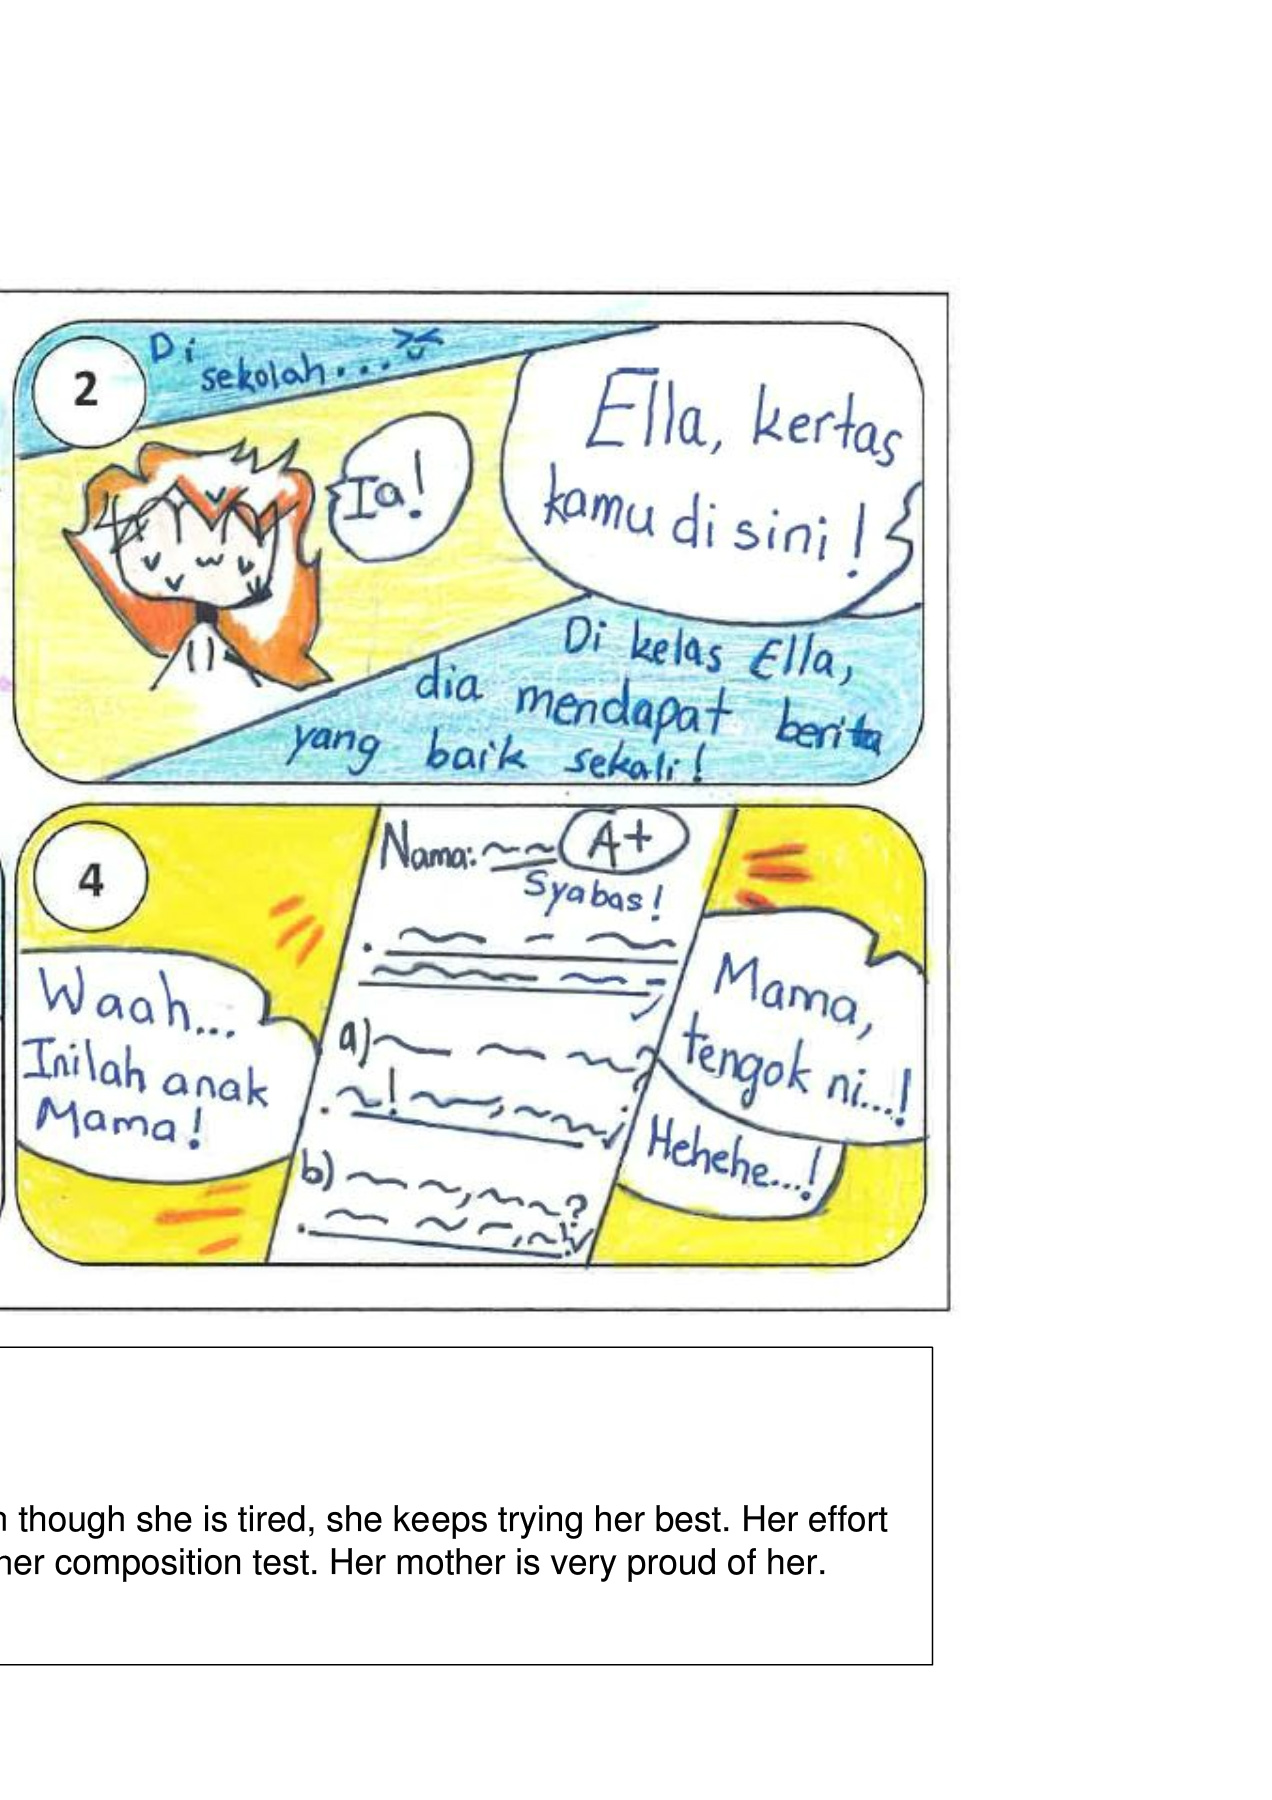 2
Di
sekolah...
Ia!
Ella, kertas
kamu di sini!
Di kelas Ella,
dia mendapat berita
yang baik sekali!
4
Waah...
Inilah anak
Mama!
Nama:
A+
Syabas!
a)
b)
Mama,
tengok ni...!
Hehehe...!
though she is tired, she keeps trying her best. Her effort
her composition test. Her mother is very proud of her.